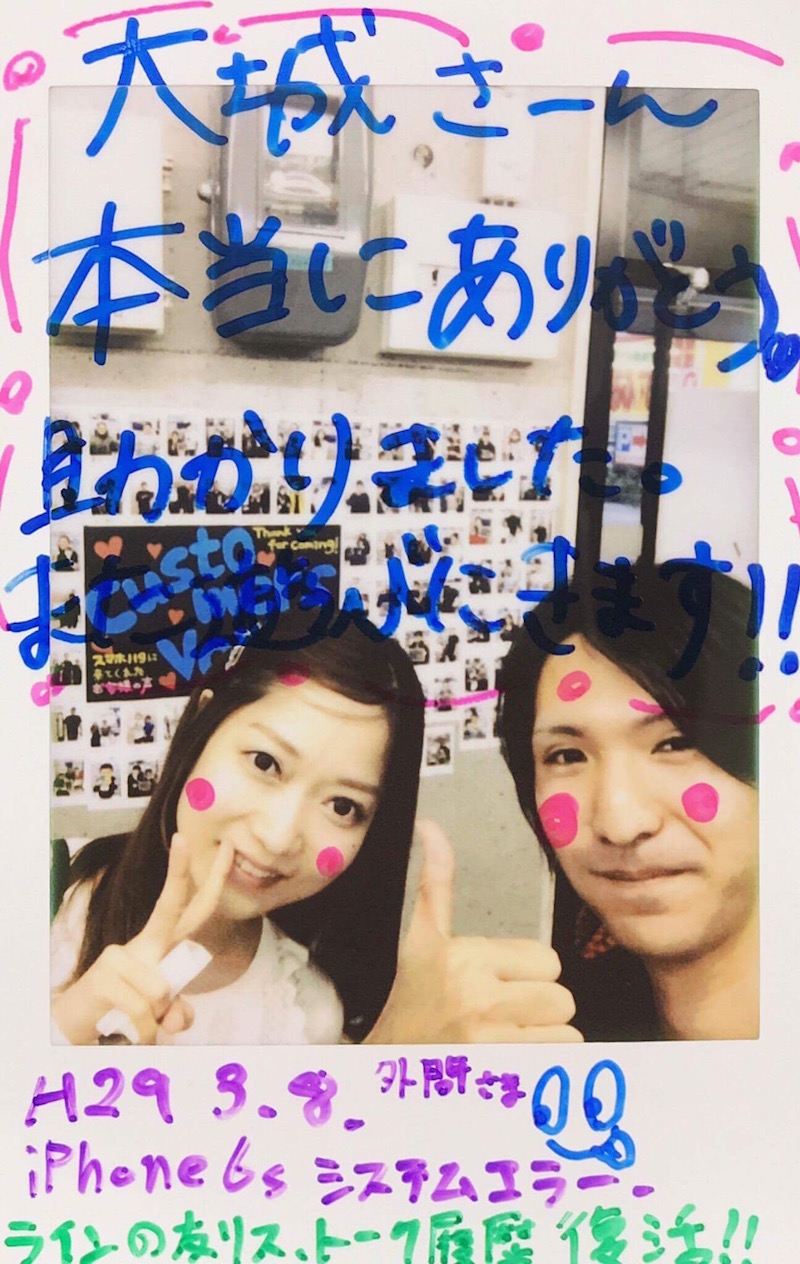 大城さーん
本当にありがとう。
助かりました。
また遊びにきます!!
Thank you
for coming!
Customers
スマホ119に
来てくれた
お客様の声
H29 3.8. 外間さま
iPhone6s システムエラー.
ラインの友リス、トーク履歴 復活!!